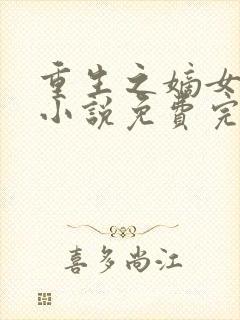 重生之嫡女
小说免费完
喜多尚江